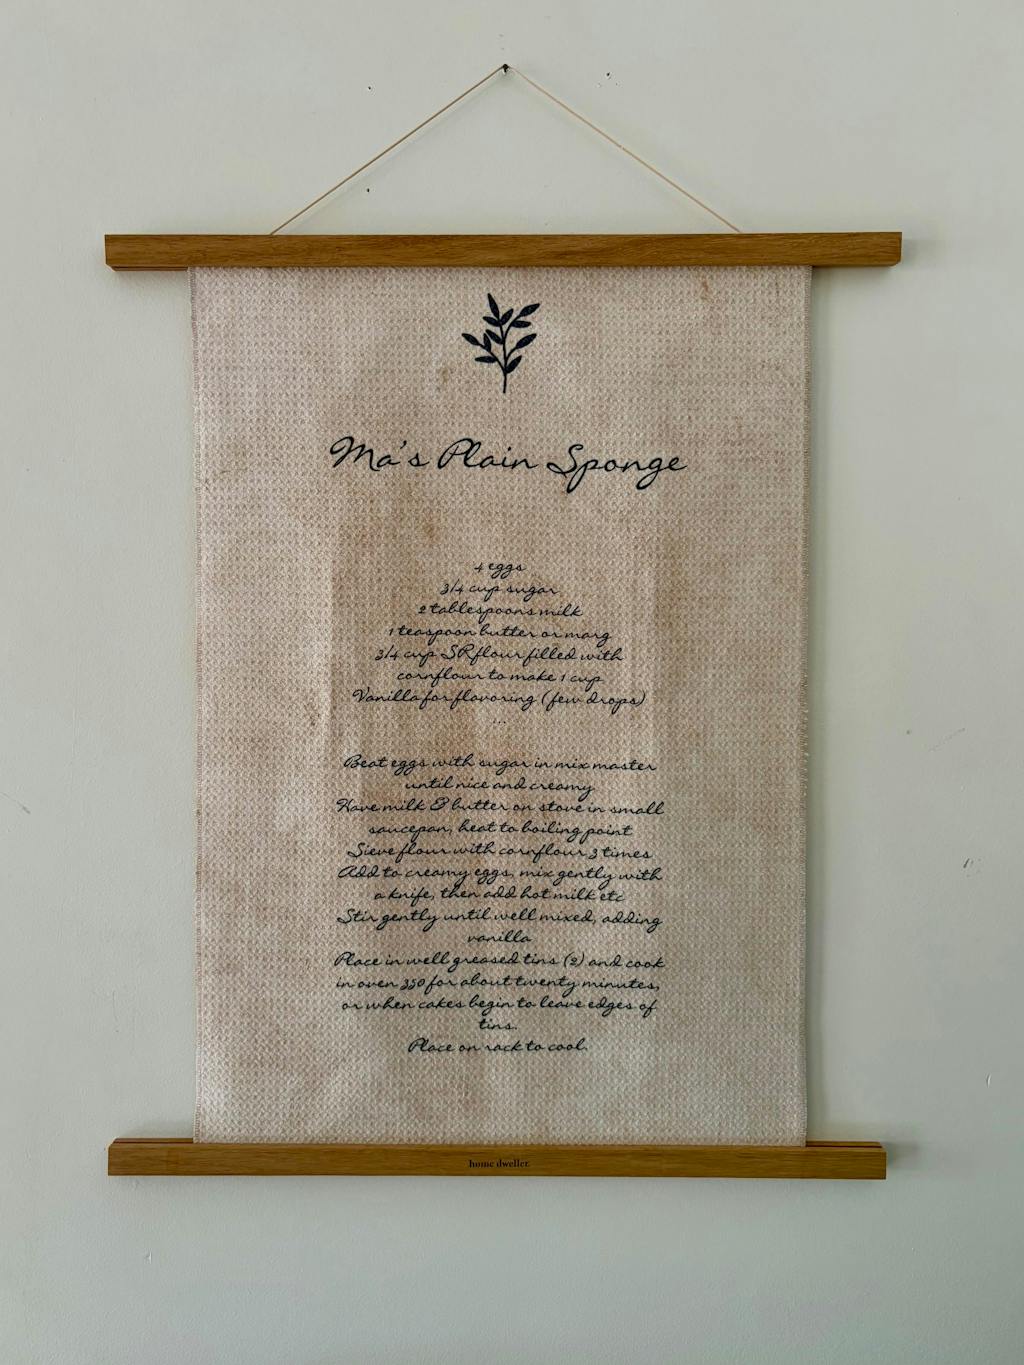 Ma's Plain Sponge
4 eggs
3/4 cup sugar
2 tablespoons milk
1 teaspoon butter or marg
3/4 cup SR flour filled with
cornflour to make 1 cup
Vanilla for flavoring (few drops)
...
Beat eggs with sugar in mix master
until nice and creamy
Have milk & butter on stove in small
saucepan, heat to boiling point
Sieve flour with cornflour 3 times
Add to creamy eggs, mix gently with
a knife, then add hot milk etc
Stir gently until well mixed, adding
vanilla
Place in well greased tins (2) and cook
in oven 350 for about twenty minutes,
or when cakes begin to leave edges of
tins.
Place on rack to cool.
home dweller.